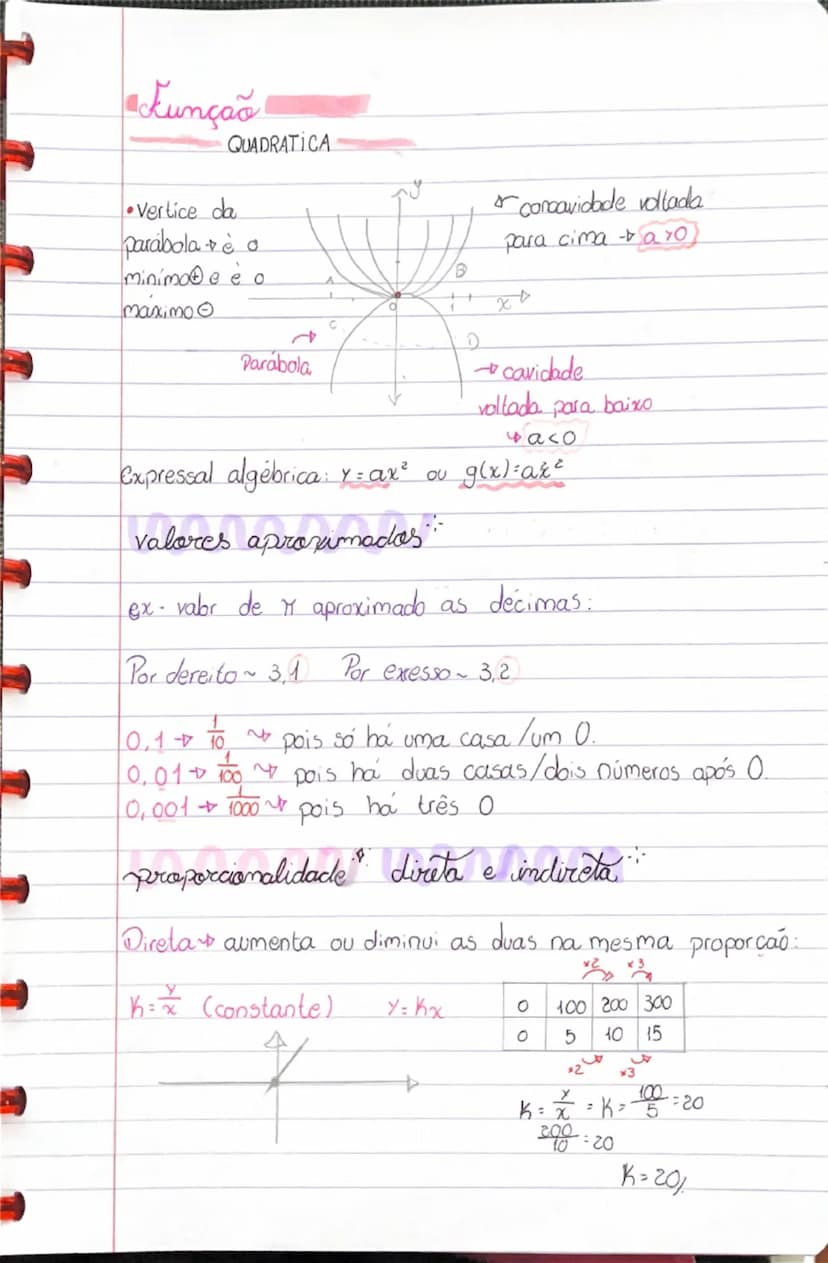 Função
QUADRATICA
• vertice da
parábola → è o
mínimo⊕ e é o
máximo ⊖
y
x
A
B
C
D
0
1
Parábola
→ concavidade voltada
para cima → a>0
→ cavidade
voltada para baixo
↳ a<0
Expressal algébrica: y=ax² ou g(x)=ax²
valores aproximados
ex - valor de π aproximado as décimas:
Por dereito ~ 3,1 Por exesso ~ 3,2
0,1 → 1/10 → pois só há uma casa/um 0.
0,01 → 1/100 → pois há duas casas/dois números após 0.
0,001 → 1/1000 → pois há três 0
proporcionalidade direta e indireta
Direta → aumenta ou diminui as duas na mesma proporção:
K=y/x (constante) y=Kx
×2 ×3
0 100 200 300
0 5 10 15
×2 ×3
K=y/x = K=100/5=20
200/10=20
K=20//